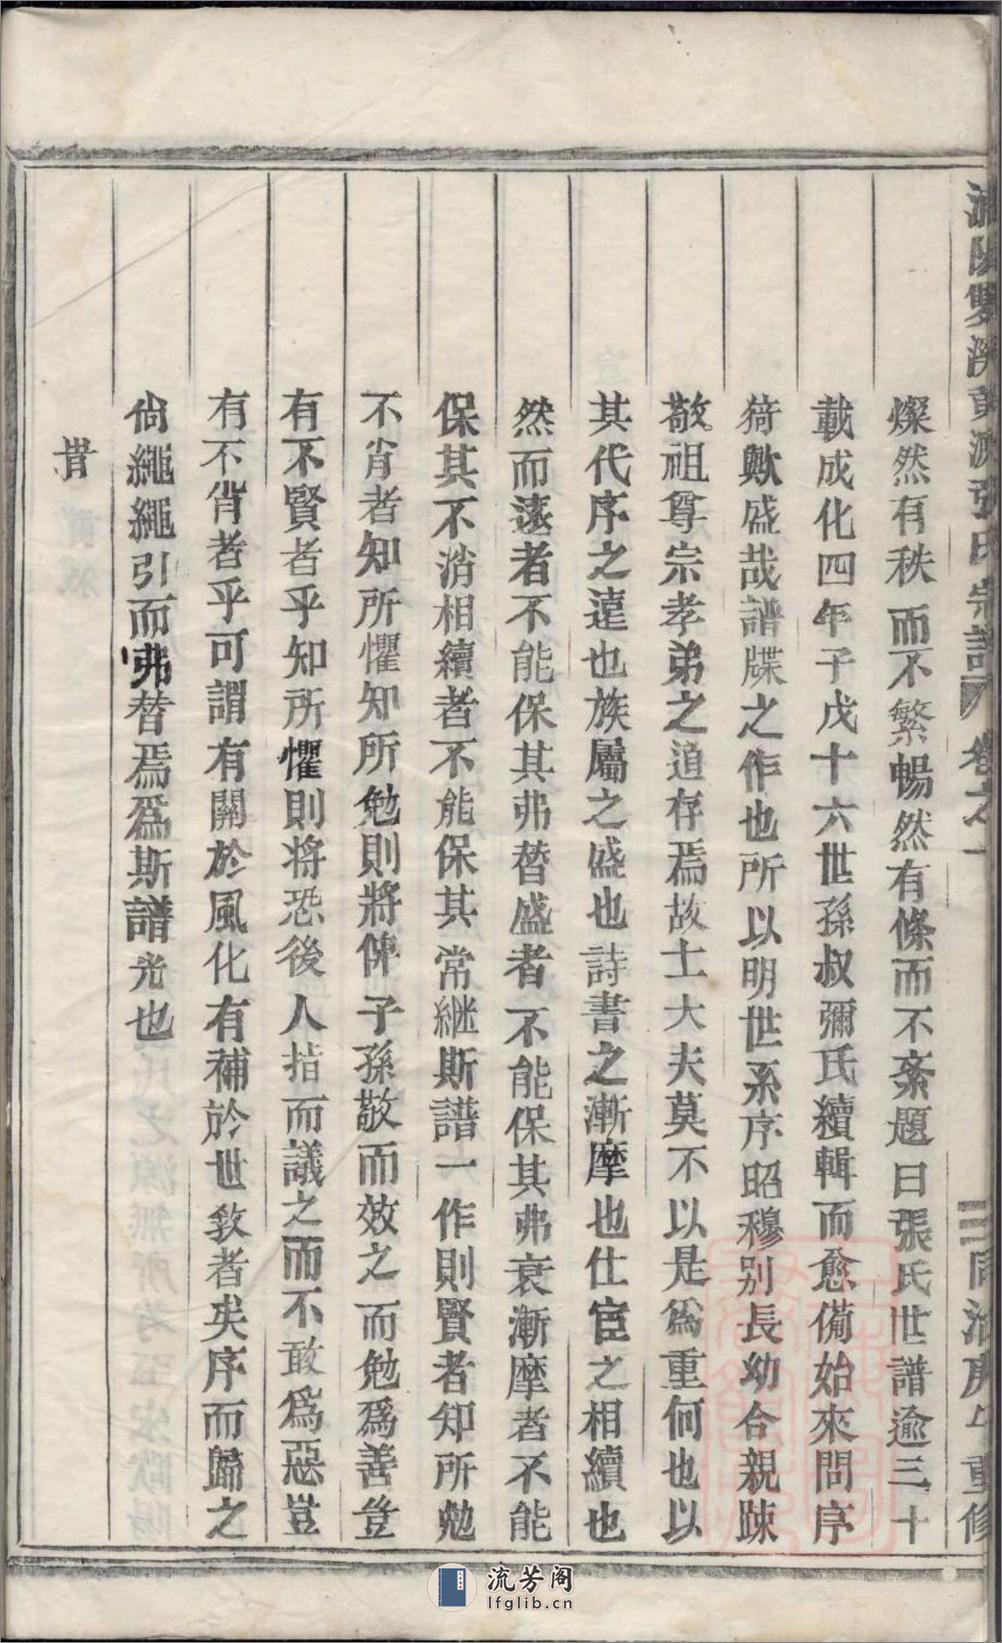 浦陽雙溪黃源張氏宗譜 卷之一 同治庚午重修
燦然有秩而不繁暢然有條而不紊題曰張氏世譜逾三十
載成化四年子戊十六世孫叔彌氏續輯而愈備始來問序
猗歟盛哉譜牒之作也所以明世系序昭穆別長幼合親踈
敬祖尊宗孝弟之道存焉故士大夫莫不以是爲重何也以
其代序之遠也族屬之盛也詩書之漸摩也仕宦之相續也
然而遠者不能保其弗替盛者不能保其弗衰漸摩者不能
保其不消相續者不能保其常継斯譜一作則賢者知所勉
不肖者知所懼知所勉則將俾子孫敬而效之而勉爲善豈
有不賢者乎知所懼則将恐後人指而議之而不敢爲惡豈
有不肖者乎可謂有關於風化有補於世敎者矣序而歸之
尙繩繩引而弗替焉爲斯譜光也
旹
流芳阁
lfglib.cn